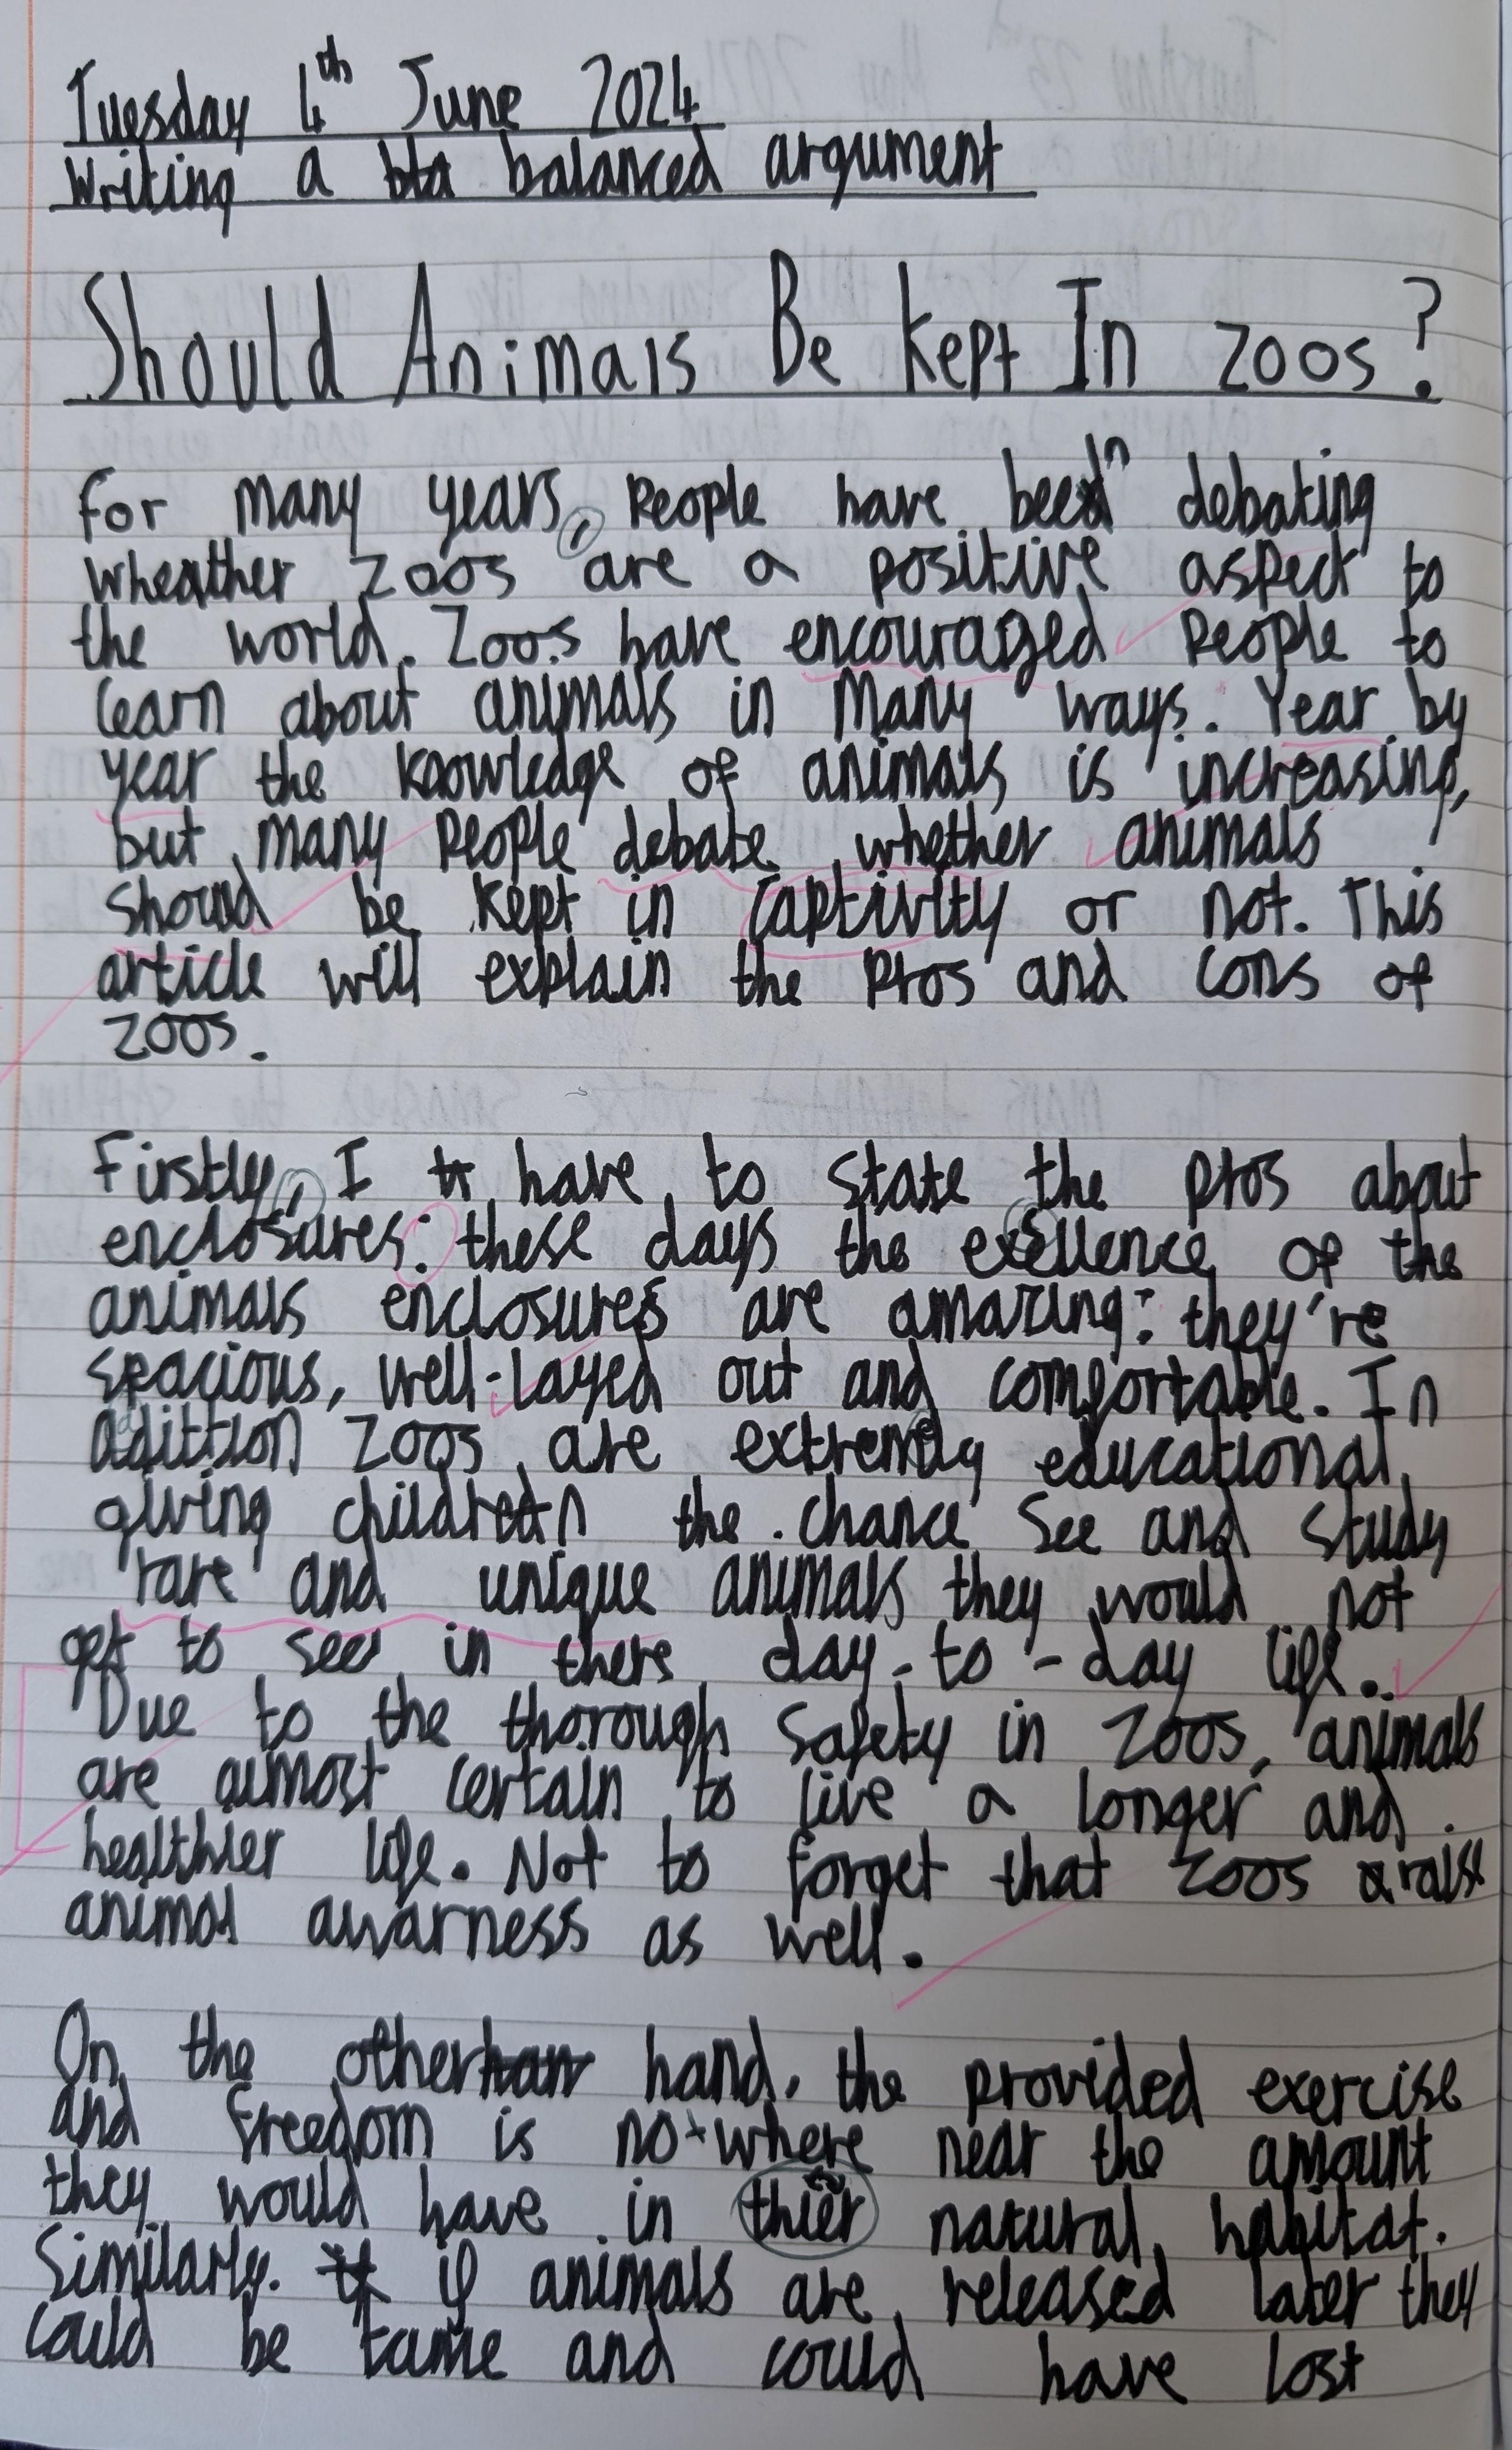 Tuesday 4th June 2024
Writing a bta balanced argument
Should Animals Be Kept In Zoos?
For many years, People have been debating
wheather zoos are a positive aspect to
the world. Zoos have encouraged People to
learn about animals in Many ways. Year by
year the knowledge of animals is increasing,
but many People debate whether animals
should be kept in captivity or not. This
article will explain the Pros and cons of
zoos.
Firstly, I tr have to state the pros about
enclosures: these days the exsellence of the
animals enclosures are amazing: they're
spacious, well-layed out and comfortable. In
adittion zoos are extremely educational,
giving children the chance see and study
rare and unique animals they would not
get to see in there day-to-day life.
Due to the thorough safety in zoos, animals
are almost certain to live a longer and
healthier life. Not to forget that zoos a raise
animal awarness as well.
On the otherhan hand, the provided exercise
and freedom is no-where near the amount
they would have in thier natural habitat.
Similarly. If if animals are released later they
could be tame and could have lost